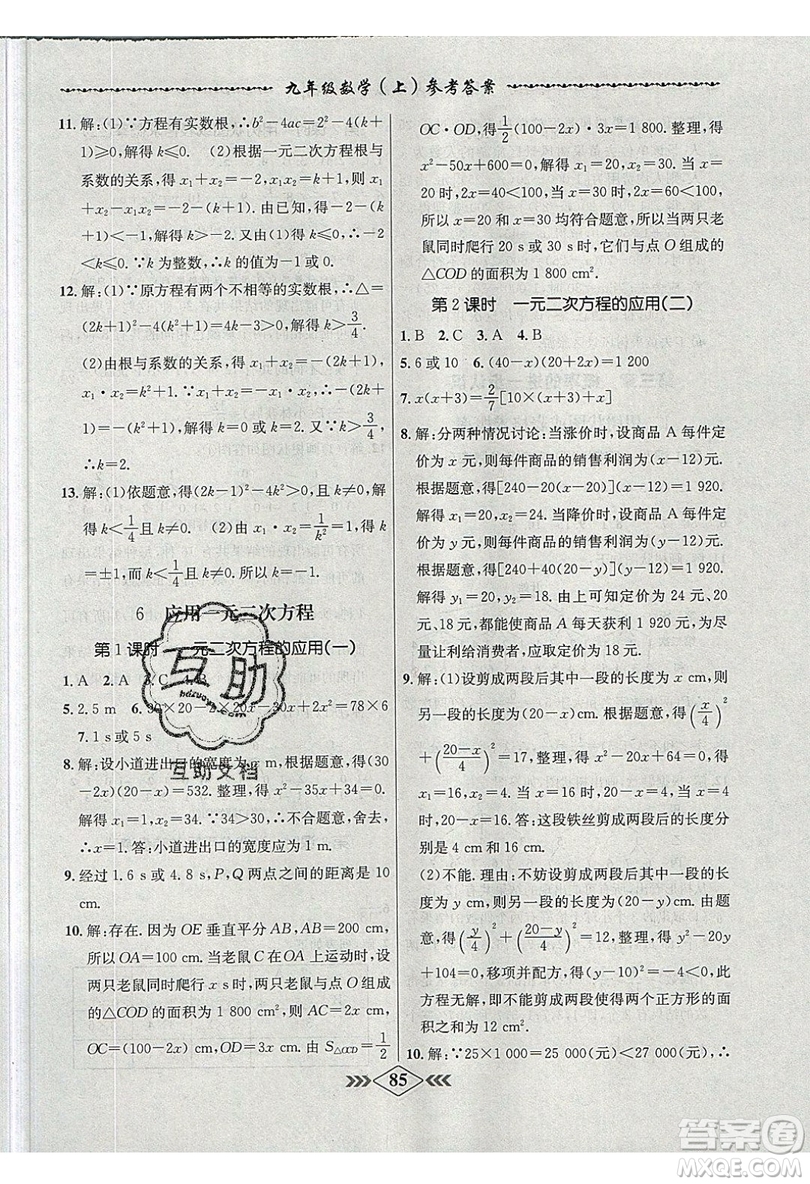 九年级数学(上)参考答案
11. 解:(1)∵方程有实数根,∴b²-4ac=2²-4(k+
1)≥0,解得k≤0. (2)根据一元二次方程根与
系数的关系,得x₁+x₂=-2,x₁x₂=k+1,x₁+
x₂-x₁x₂=-2-(k+1). 由已知,得-2-(k+
1)<-1,解得k>-2. 又由(1)可知k≤0,∴-2
<k≤0. ∵k为整数,∴k的值为-1或0.
12. 解:(1)∵原方程有两个不相等的实数根,∴△=
(2k+1)²-4(k²+1)=4k-3>0,解得k>3/4.
(2)由根与系数的关系,得x₁+x₂=-(2k+1),
x₁·x₂=k²+1. ∵x₁+x₂=-x₁·x₂,∴-(2k+
1)=-(k²+1),解得k=0或k=2. 又∵k>3/4,
∴k=2.
13. 解:(1)依题意,得(2k-1)²-4k²>0且k≠0,解
得k<1/4且k≠0. (2)由x₁·x₂=1/k²=1,得k=
±1,而k<1/4且k≠0. 所以k=-1.
6 应用一元二次方程
第1课时 一元二次方程的应用(一)
1. A 2. A 3. C 4. B
5. 2.5 m 6. 30×20-2×20x-30x+2x²=78×6
7. 1 s或5 s
8. 解:设小道进出口的宽度为x m,根据题意,得(30
-2x)(20-x)=532. 整理,得x²-35x+34=0.
解得x₁=1,x₂=34. ∵34>30,∴不合题意,舍
去,∴x=1. 答:小道进出口的宽度应为1 m.
9. 经过1.6 s或4.8 s,P、Q两点之间的距离是10
cm.
10. 解:存在. 因为OE垂直平分AB,AB=200 cm,
所以OA=100 cm. 当老鼠C在OA上时,设两
只老鼠同时爬行x s时,两只老鼠与点O组成
的△COD的面积为1 800 cm²,则AC=2x cm,
OC=(100-2x) cm,OD=3x cm. 由S△OCD=1/2
OC·OD,得1/2(100-2x)·3x=1 800. 整理,得
x²-50x+600=0. 解得x₁=20,x₂=30. 当x=
20时,2x=40<100;当x=30时,2x=60<100,
所以x=20和x=30均符合题意,所以当两只老
鼠同时爬行20 s或30 s时,它们与点O组成的
△COD的面积为1 800 cm².
第2课时 一元二次方程的应用(二)
1. B 2. C 3. A 4. B
5. 6或10 6. (40-x)(20+2x)=1 200
7. x(x+3)=2/7[10×(x+3)+x]
8. 解:分两种情况讨论:当涨价时,设商品A每件定
价为x元,则每件商品的销售利润为(x-12)元.
根据题意,得[240-20(x-20)](x-12)=1 920.
整理,得x²-44x+480=0. 解得x₁=20,x₂=24.
当降价时,设商品A每件定价为y元,则每件商
品的销售利润为(y-12)元. 根据题意,得[240+
40(20-y)](y-12)=1 920. 整理,得y²-38y+
360=0. 解得y₁=20,y₂=18. 由上可知定价24
元、20元、18元,都能使商品A每天获利1 920元,为
了尽量让利给消费者,应取定价为18元.
9. 解:(1)设剪成两段后其中一段的长度为x cm,则
另一段的长度为(20-x) cm. 根据题意,得(x/4)²
+((20-x)/4)²=17. 整理,得x²-20x+64=0. 解得
x₁=4,x₂=16. 当x=4时,20-x=16;当x=16
时,20-x=4. 答:这段铁丝剪成两段后的长度分
别是4 cm和16 cm.
(2)不能. 理由:不妨设剪成两段后其中一段的长
度为y cm,则另一段的长度为(20-y) cm. 由题
意,得(y/4)²+((20-y)/4)²=12. 整理,得y²-
20y+104=0,移项并配方,得(y-10)²=-4<
0. 所以此方程无解,所以不能剪成两个正方形的
面积之和为12 cm².
10. 解:∵25×1 000=25 000(元)<27 000(元),
85
互助
hdzuoye.com
互助文档
答案圈
MXQE.COM